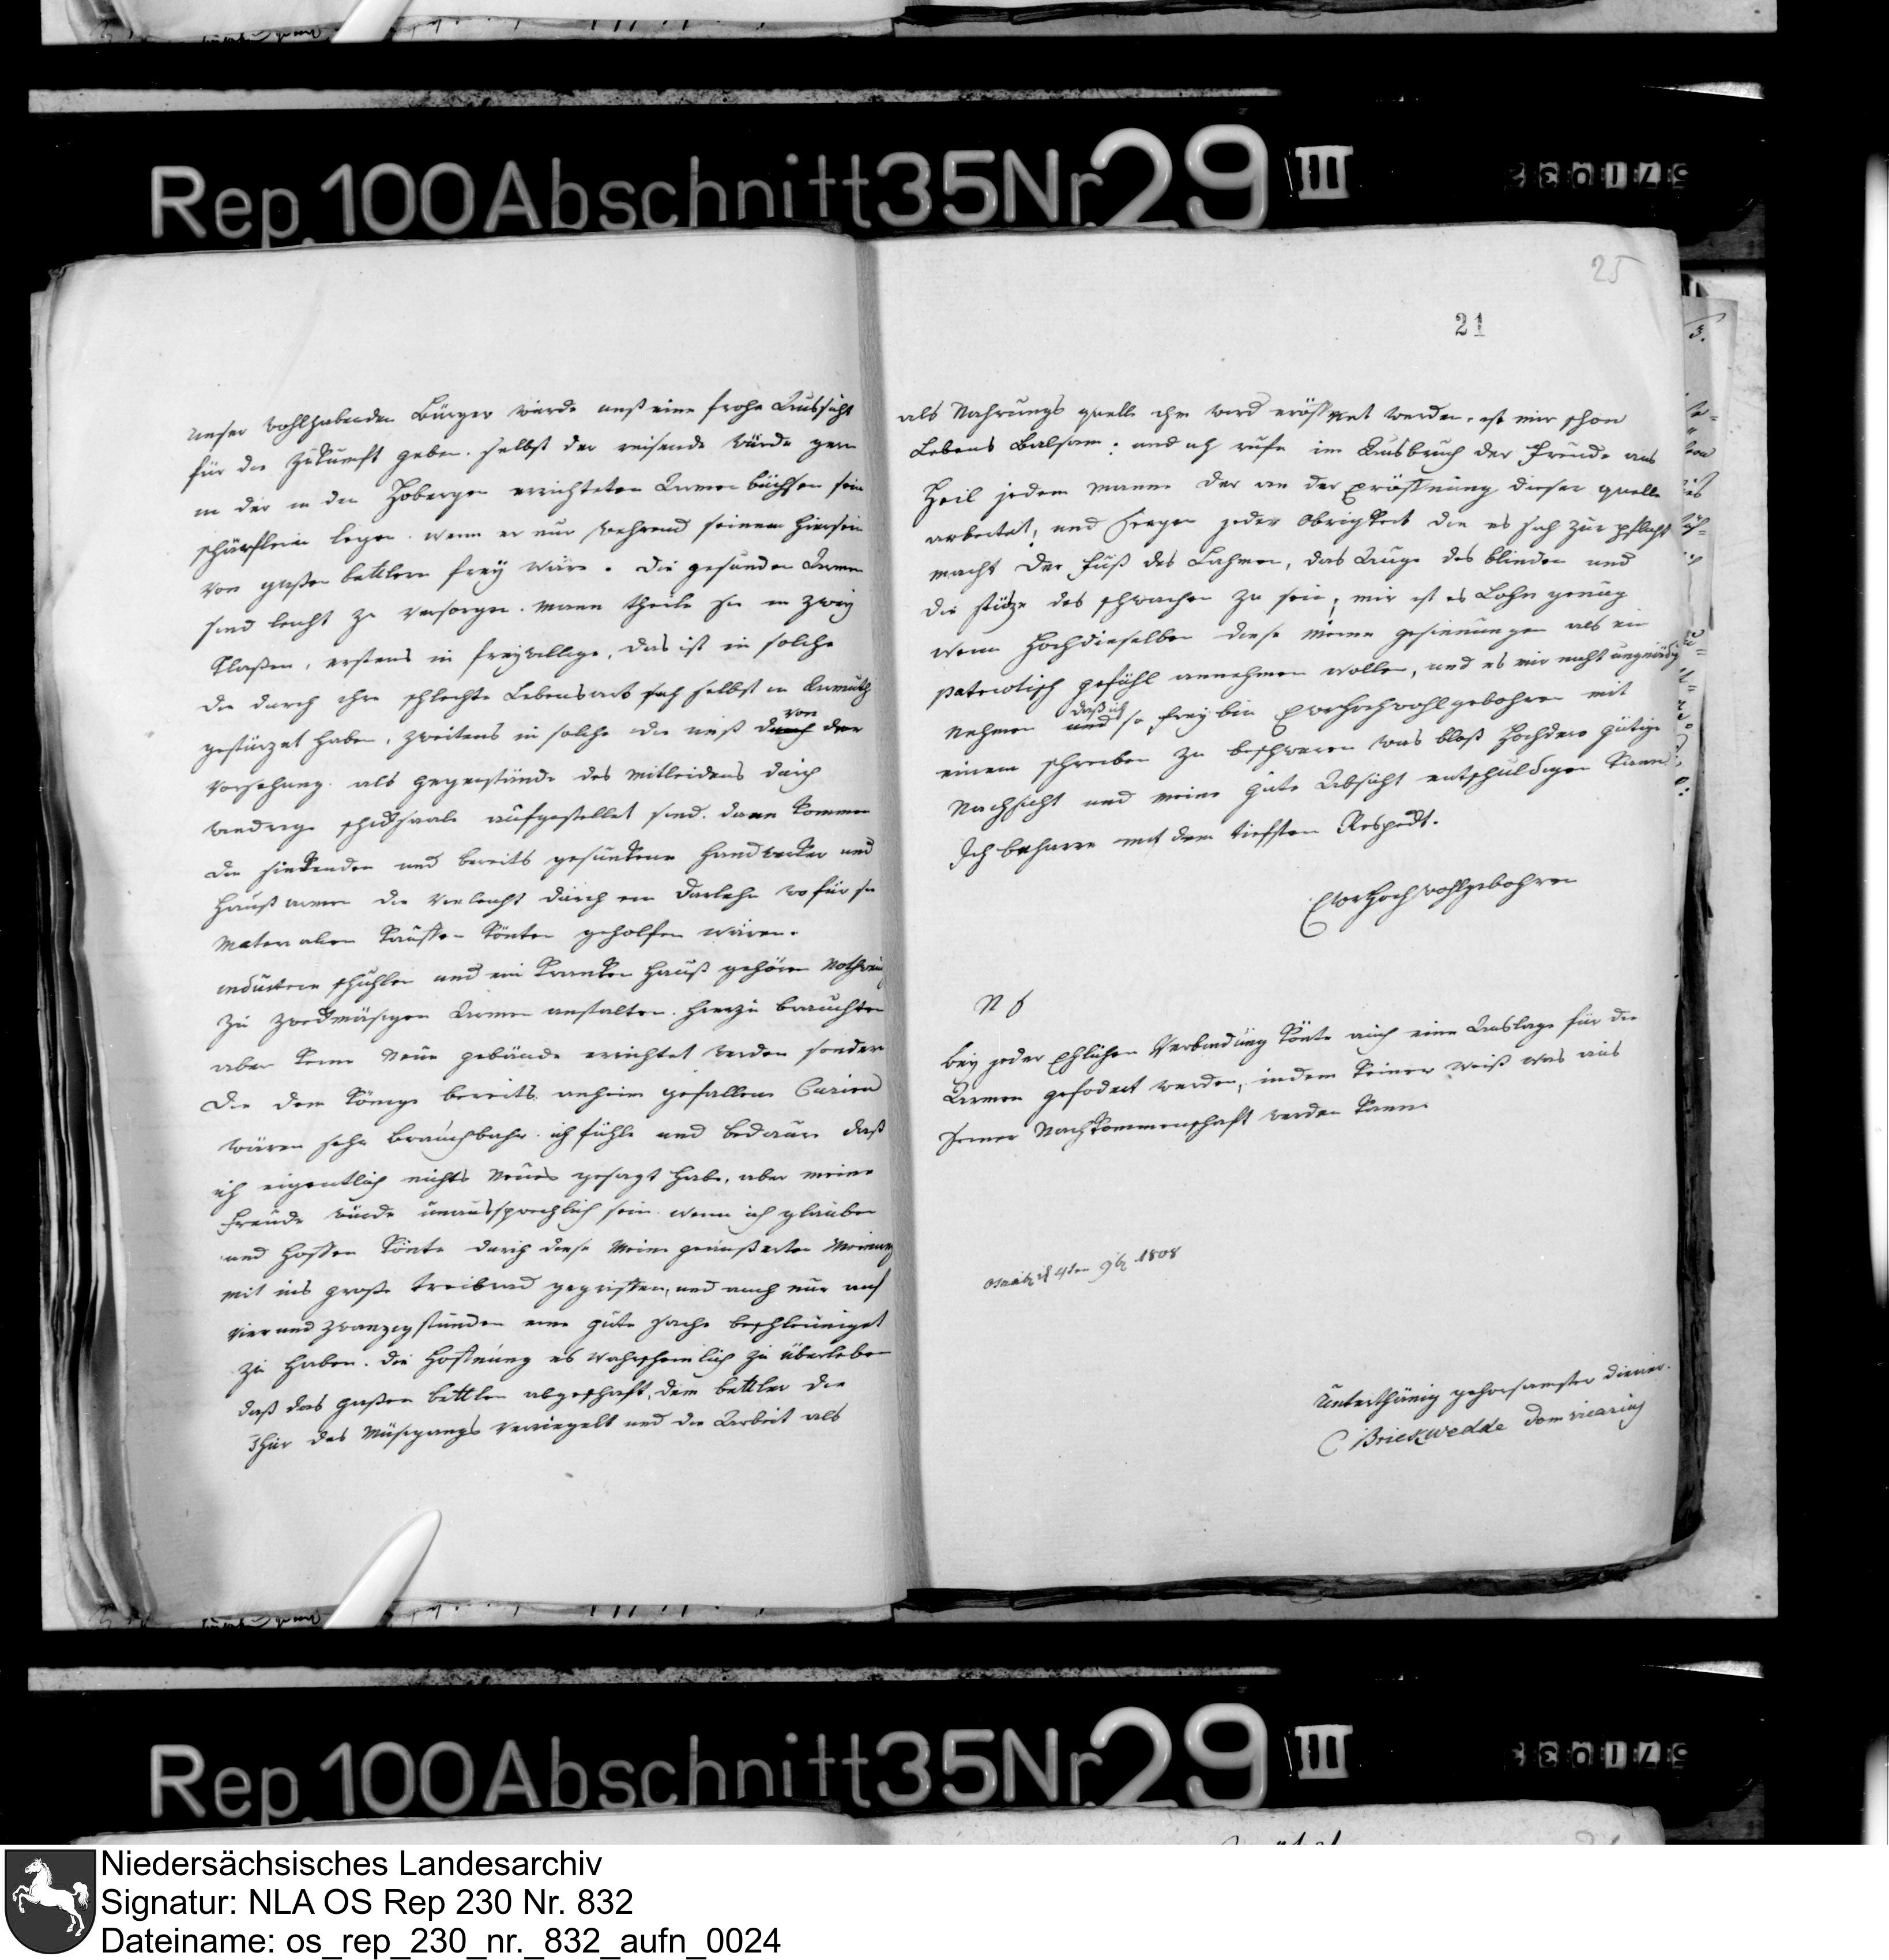 Rep. 100 Abschnitt 35 Nr. 29 III
unser wohlhabenden Bürger würde unß eine frohe Aussicht
für die Zukunft geben. selbst der reisende würde gern
in der in den Hobergen errichteten Armenbüchsen sein
schärflein legen. wenn er nur wehrend seinem hiersein
von gaßen bettlern frey wäre. Die gesunden Armen
sind leicht zu versorgen. Mann theile sie in zwey
Klaßen, erstens in freywillige, das ist in solche
die durch ihre schlechte Lebensart sich selbst in Armuth
gestürzet haben, zweitens in solche die unß durch von der
Vorsehung als gegenstände des Mitleidens durch
wiedrige schicksaale aufgestellet sind. dann kommen
die sinkenden und bereits gesunkene Handwerker und
Haußarmen die vieleicht durch ein Darlehn wofür sie
Materialien kauffen könten geholfen wären.
industrie schuhlen und ein Kranken Hauß gehören Nothwend
zu zweckmäsigen Armen anstalten. hierzu brauchten
aber keine Neue gebäude errichtet werden sondern
Die dem Könige bereits anheim gefallene Curien
wären sehr Brauchbahr. ich fühle und bedaure daß
ich eigentlich nichts Neues gesagt habe, aber meine
Freude würde unaussprechlich sein wenn ich glauben
und hoffen könte durch diese Meine geäußerten Meinung
mit ins große treibrad gegriffen, und auch nur auf
vier und zwanzig stunden eine gute sache beschleuniget
zu haben. die Hoffnung es wahrscheinlich zu überleben
daß das gaßen bettlen abgeschaft, dem bettler die
Thür des Müsigangs verriegelt und die Arbeit als
25
21
als Nahrungs quelle ihm wird eröffnet werden, ist mir schon
Lebens Balsam: und ich rufe im Ausbruch der Freude aus
Heil jedem Manne der an der Eröffnung dieser quelle
arbeitet, und Seegen jeder Obrigkeit die es sich zur pflicht
macht der Fuß des Lahmen, das Auge des blinden und
die stütze des schwachen zu sein, mir ist es Lohn genug
wenn Hochdieselben diese meine gesinnungen als ein
patriotisch gefühl annehmen wollen, und es mir nicht ungnädig
Nehmen und daß ich so frey bin Ewrhochwohlgebohren mit
einem schreiben zu beschweren was bloß Hochdero gütige
Nachsicht und meine gute Absicht entschuldigen kann
Ich beharre mit dem tiefsten Respeckt.
EwrHochwohlgebohren
N b
bey jeder Ehlichen Verbindung könte auch eine Auslage für die
Armen gefodert werden, indem keiner weiß was aus
seiner Nachkommenschaft werden kann
4ten 9br 1808
Unterthänig gehorsamster diener.
C Brickwedde Dom vicarius
Rep. 100 Abschnitt 35 Nr. 29 III
Niedersächsisches Landesarchiv
Signatur: NLA OS Rep 230 Nr. 832
Dateiname: os_rep_230_nr._832_aufn_0024